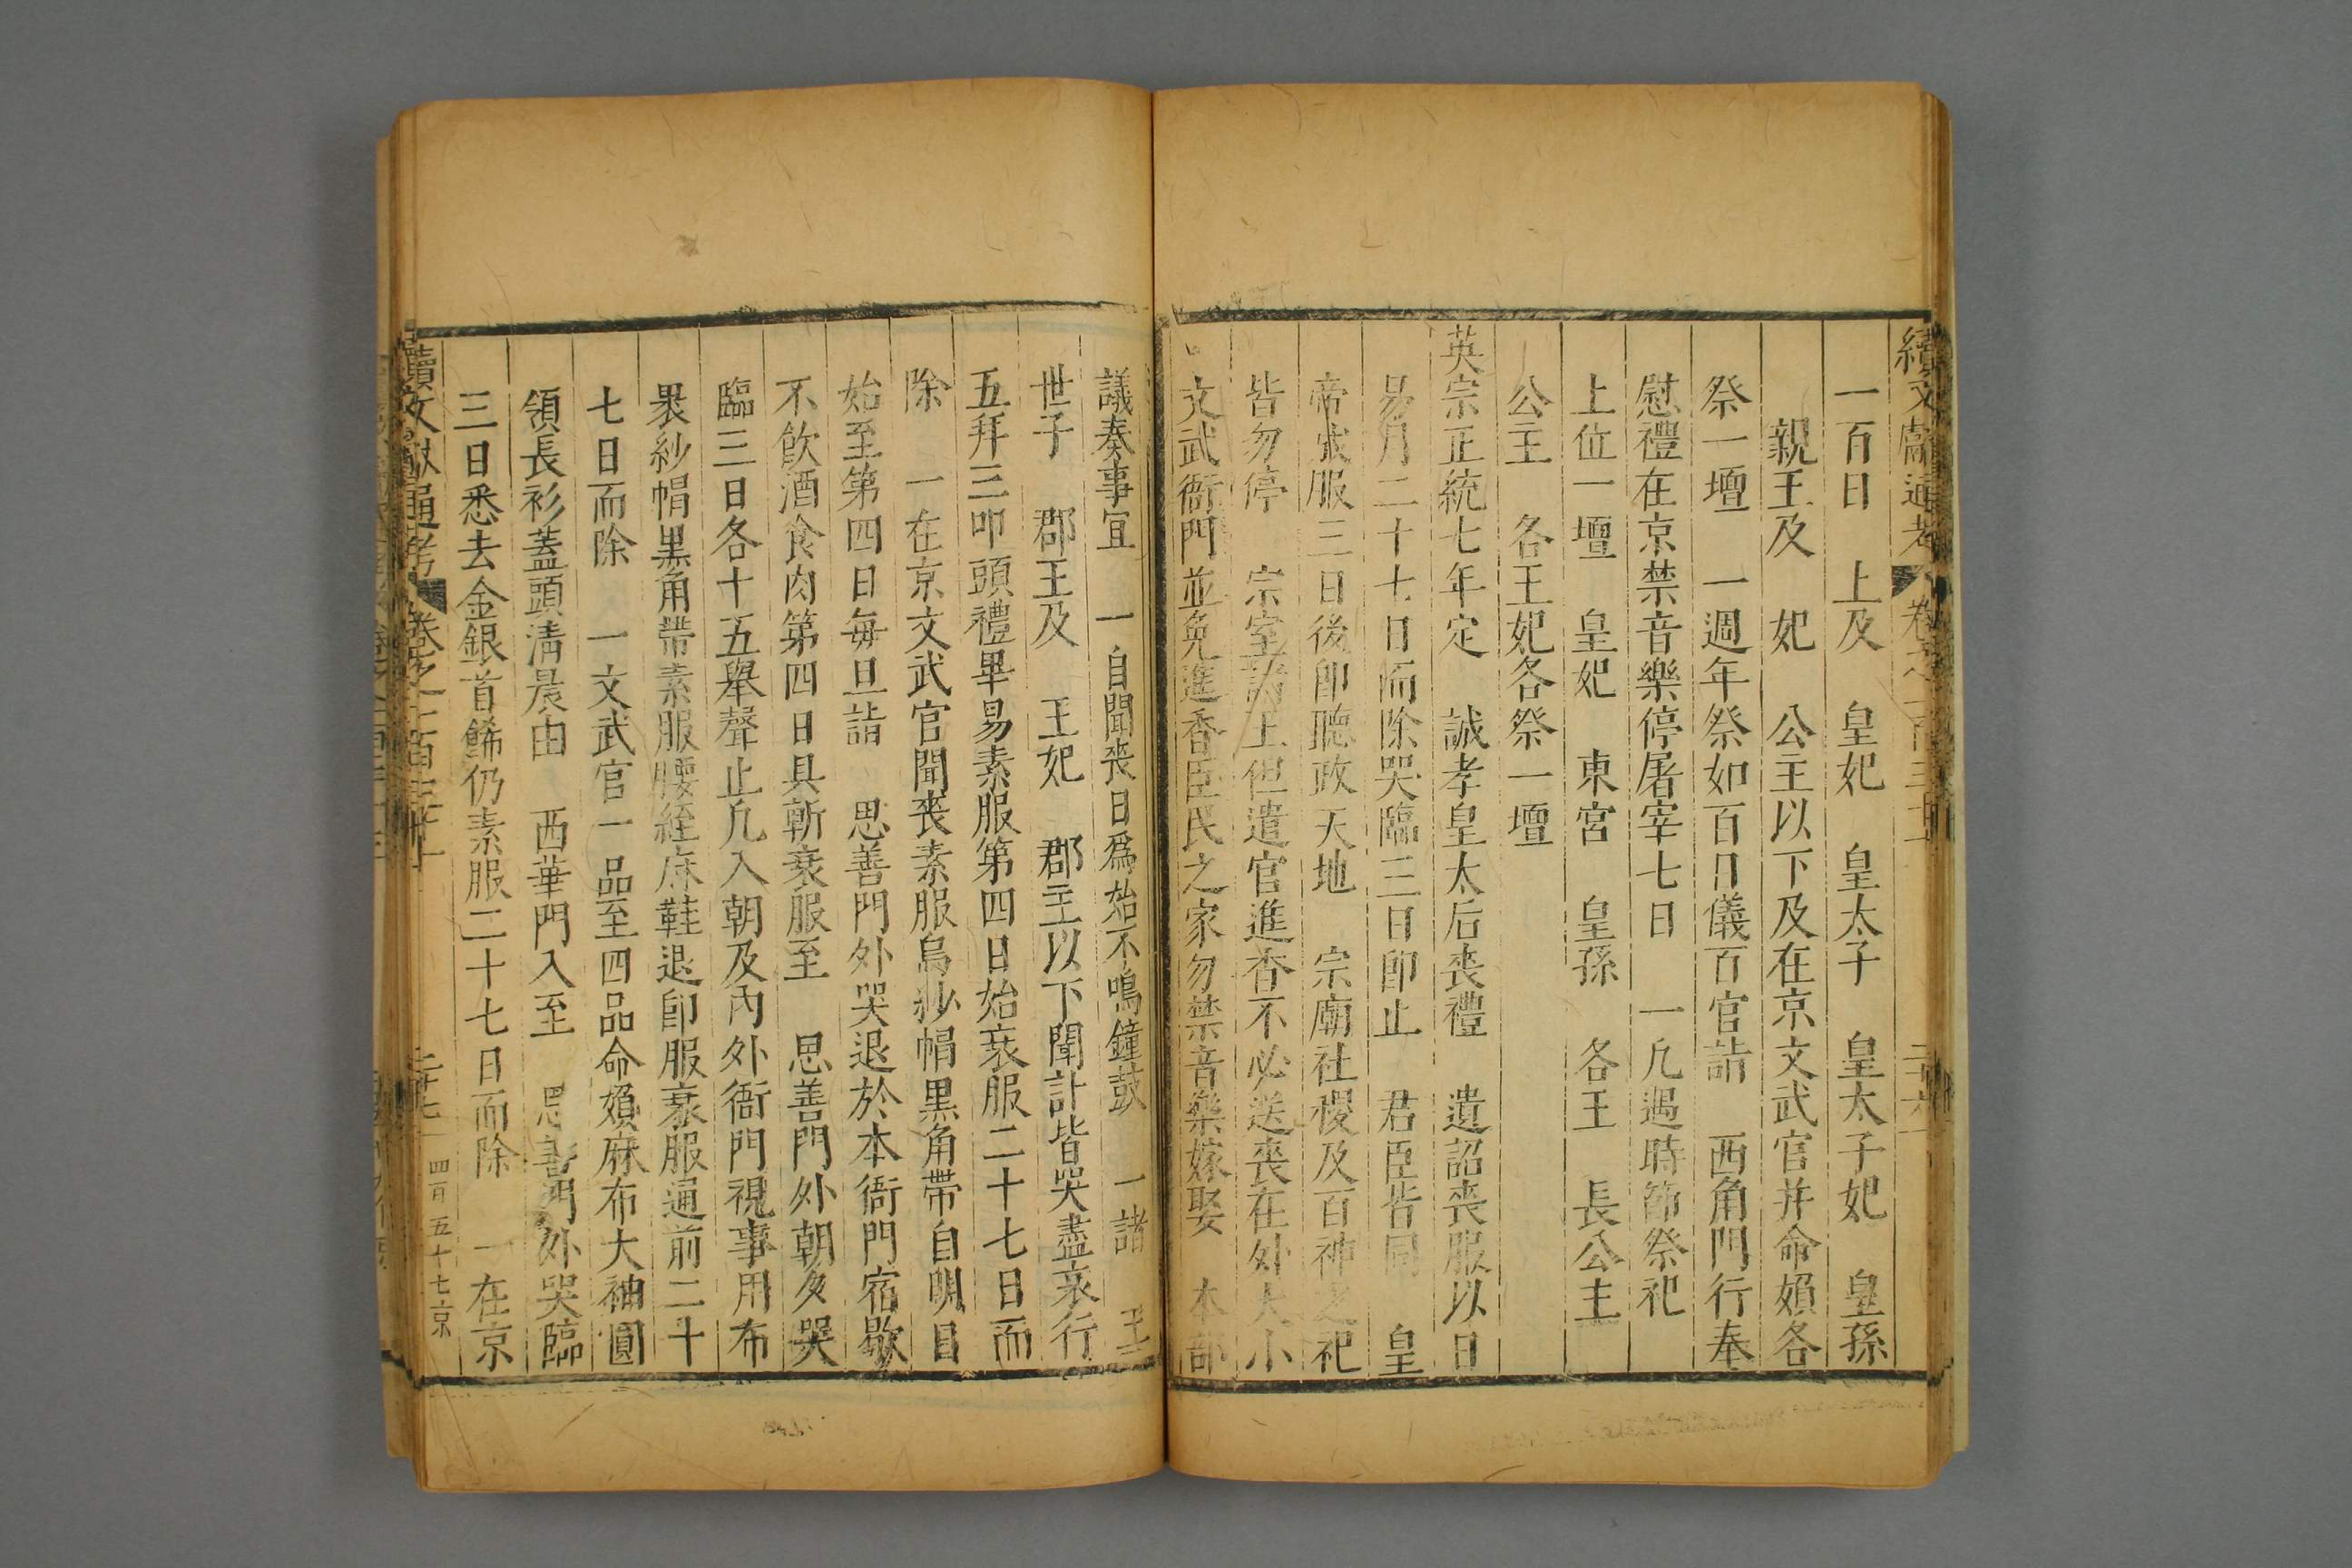 續文獻通考 卷之一百三十
一百日 上及 皇妃 皇太子 皇太子妃 皇孫
親王及 妃 公主以下及在京文武官并命婦各
祭一壇 一週年祭如百日儀百官詣 西角門行奉
慰禮在京禁音樂停屠宰七日 一凡遇時節祭祀
上位一壇 皇妃 東宮 皇孫 各王 長公主
公主 各王妃各祭一壇
英宗正統七年定 誠孝皇太后喪禮 遺詔喪服以日
易月二十七日而除哭臨三日即止 君臣皆同 皇
帝成服三日後即聽政天地 宗廟社稷及百神之祀
皆勿停 宗室諸王但遣官進香不必送喪在外大小
文武衙門並免進香臣民之家勿禁音樂嫁娶 本部
議奏事宜 一自聞喪日爲始不鳴鐘鼓 一諸 王
世子 郡王及 王妃 郡主以下聞訃皆哭盡哀行
五拜三叩頭禮畢易素服第四日始衰服二十七日而
除 一在京文武官聞喪素服烏紗帽黑角帶自明日
始至第四日每旦詣 思善門外哭退於本衙門宿歇
不飲酒食肉第四日具斬衰服至 思善門外朝夕哭
臨三日各十五舉聲止凡入朝及內外衙門視事用布
裹紗帽黑角帶素服腰絰麻鞋退即服衰服通前二十
七日而除 一文武官一品至四品命婦麻布大袖圓
領長衫蓋頭清晨由 西華門入至 思善門外哭臨
三日悉去金銀首飾仍素服二十七日而除 一在京
續文獻通考 卷之一百三十 二十七 四百五十七京